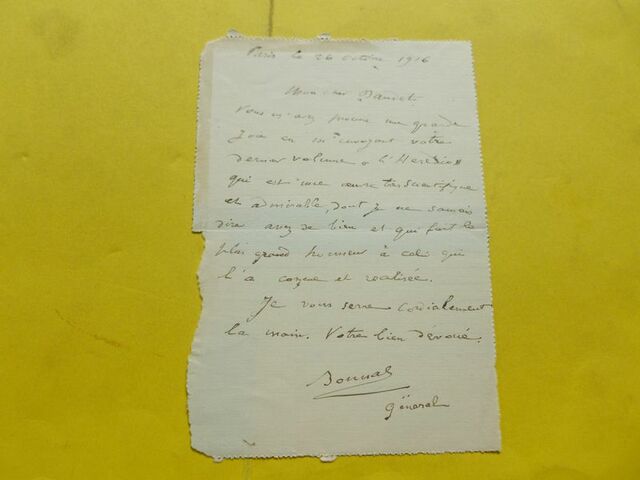 Paris le 26 octobre 1916
Mon cher Daudet
Vous m'avez procuré une grande
joie en m'envoyant votre
dernier volume « l'Hérédo »
qui est une œuvre très scientifique
et admirable, dont je ne saurais
dire assez de bien et qui fait le
plus grand honneur à celui qui
l'a conçue et réalisée.
Je vous serre cordialement
la main. Votre bien dévoué.
Bonnal
Général